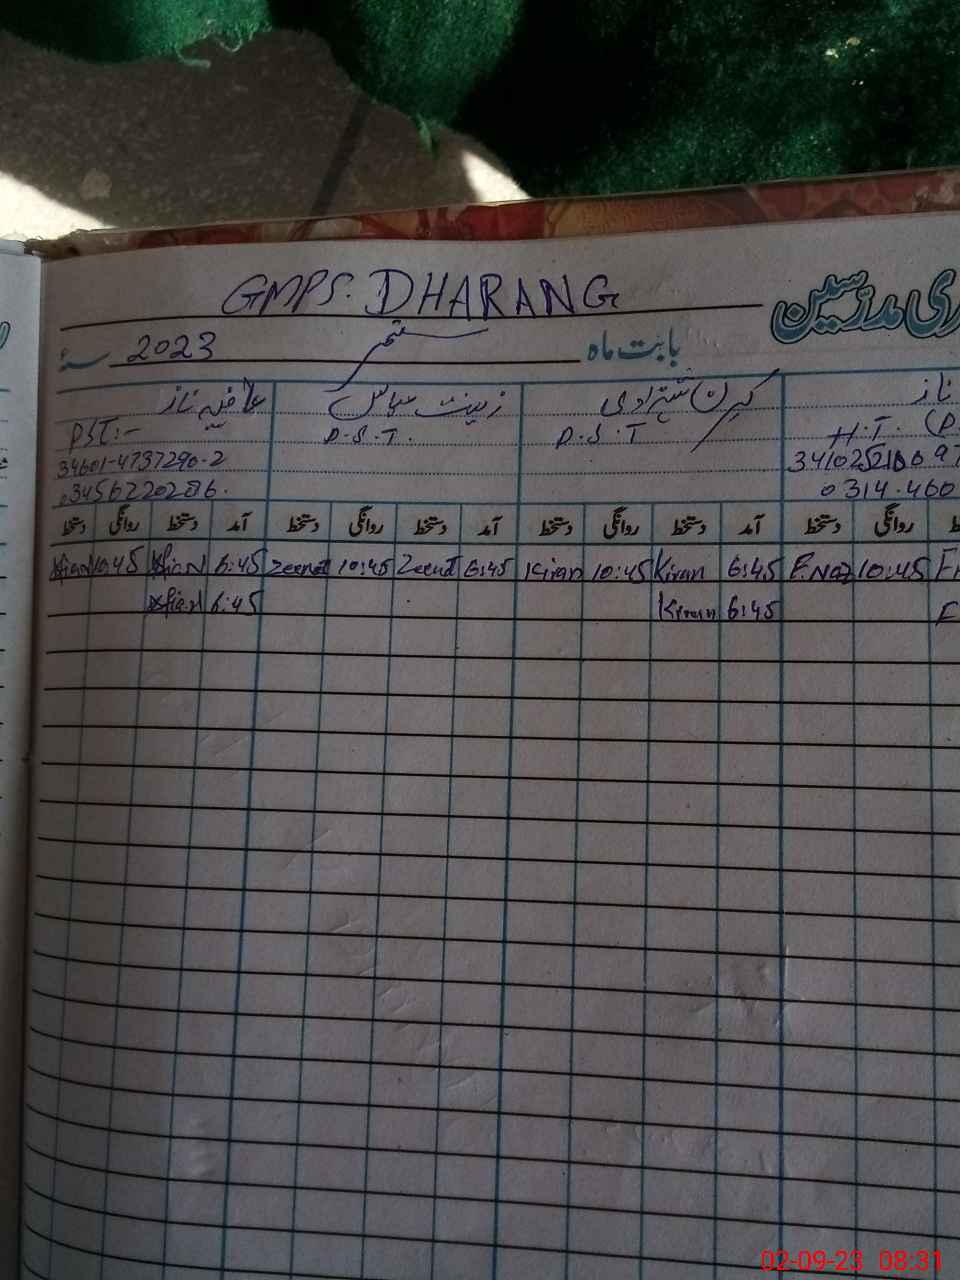 GMPS. DHARANG
ری مدرسین
بابت ماه ستمبر
سنہ 2023
ناز
کرن شہزادی
زینت عباس
عافیہ ناز
H.T. (P.
P.S.T
P.S.T.
PST:-
34601-4737290-2
0314-460
آمد دستخط روانگی دستخط آمد دستخط روانگی دستخط آمد دستخط روانگی دستخط روانگی دستخط
10:45 Afian 6:45 Zeenat 10:45 Zeenat 6:45 Kiran 10:45 Kiran 6:45 F.Naz 10:45
Afian 6:45 Kiran 6:45
02-09-23 08:31